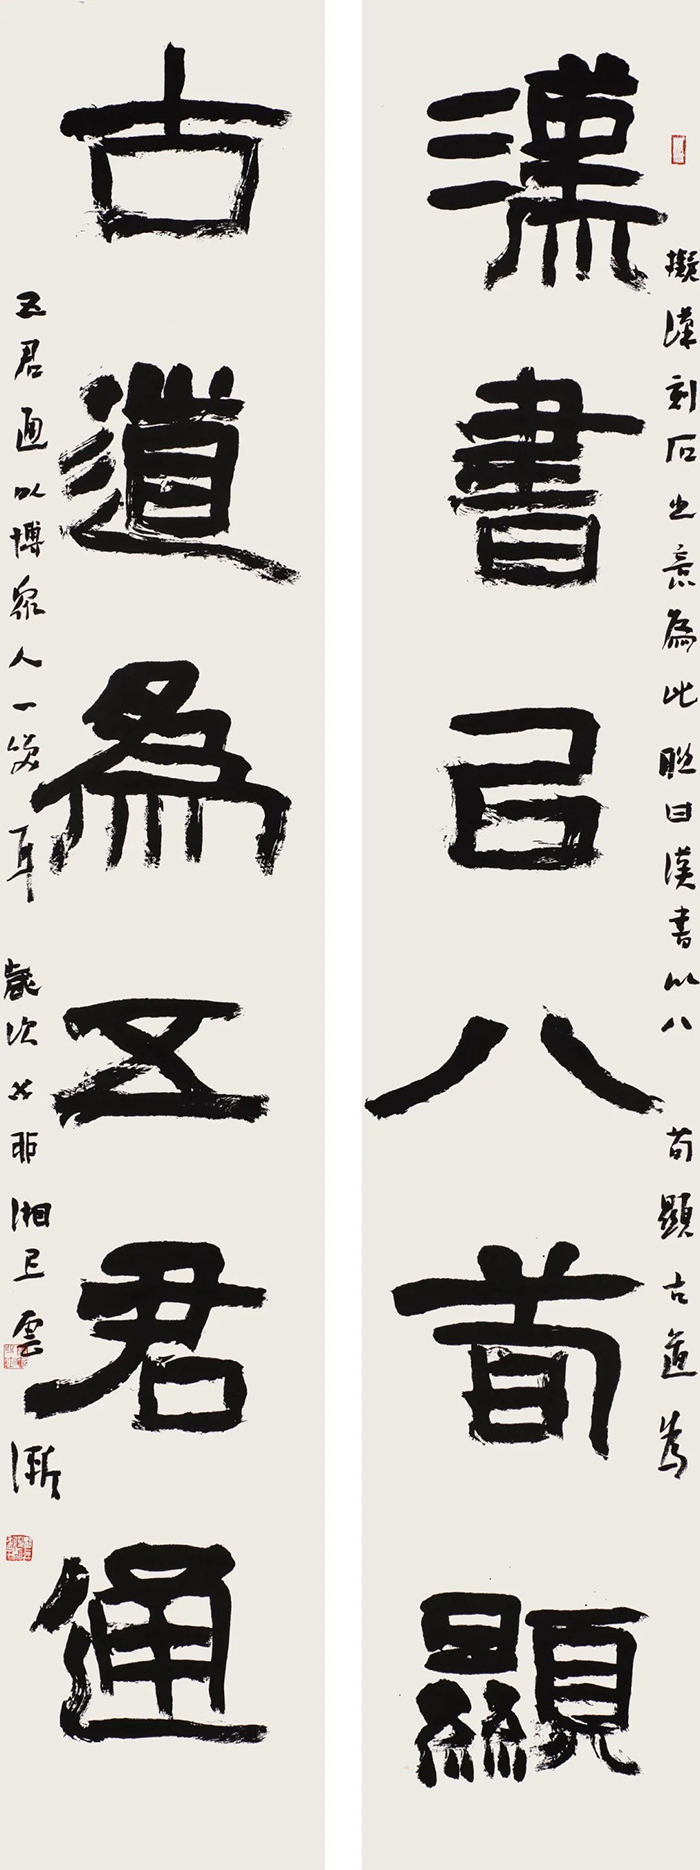 漢書㠯八荀顯
古道為五君通
擬漢刻石之意為此聯曰漢書以八荀顯古道為
五君通以博眾人一笑耳歲次癸卯湘雲漸